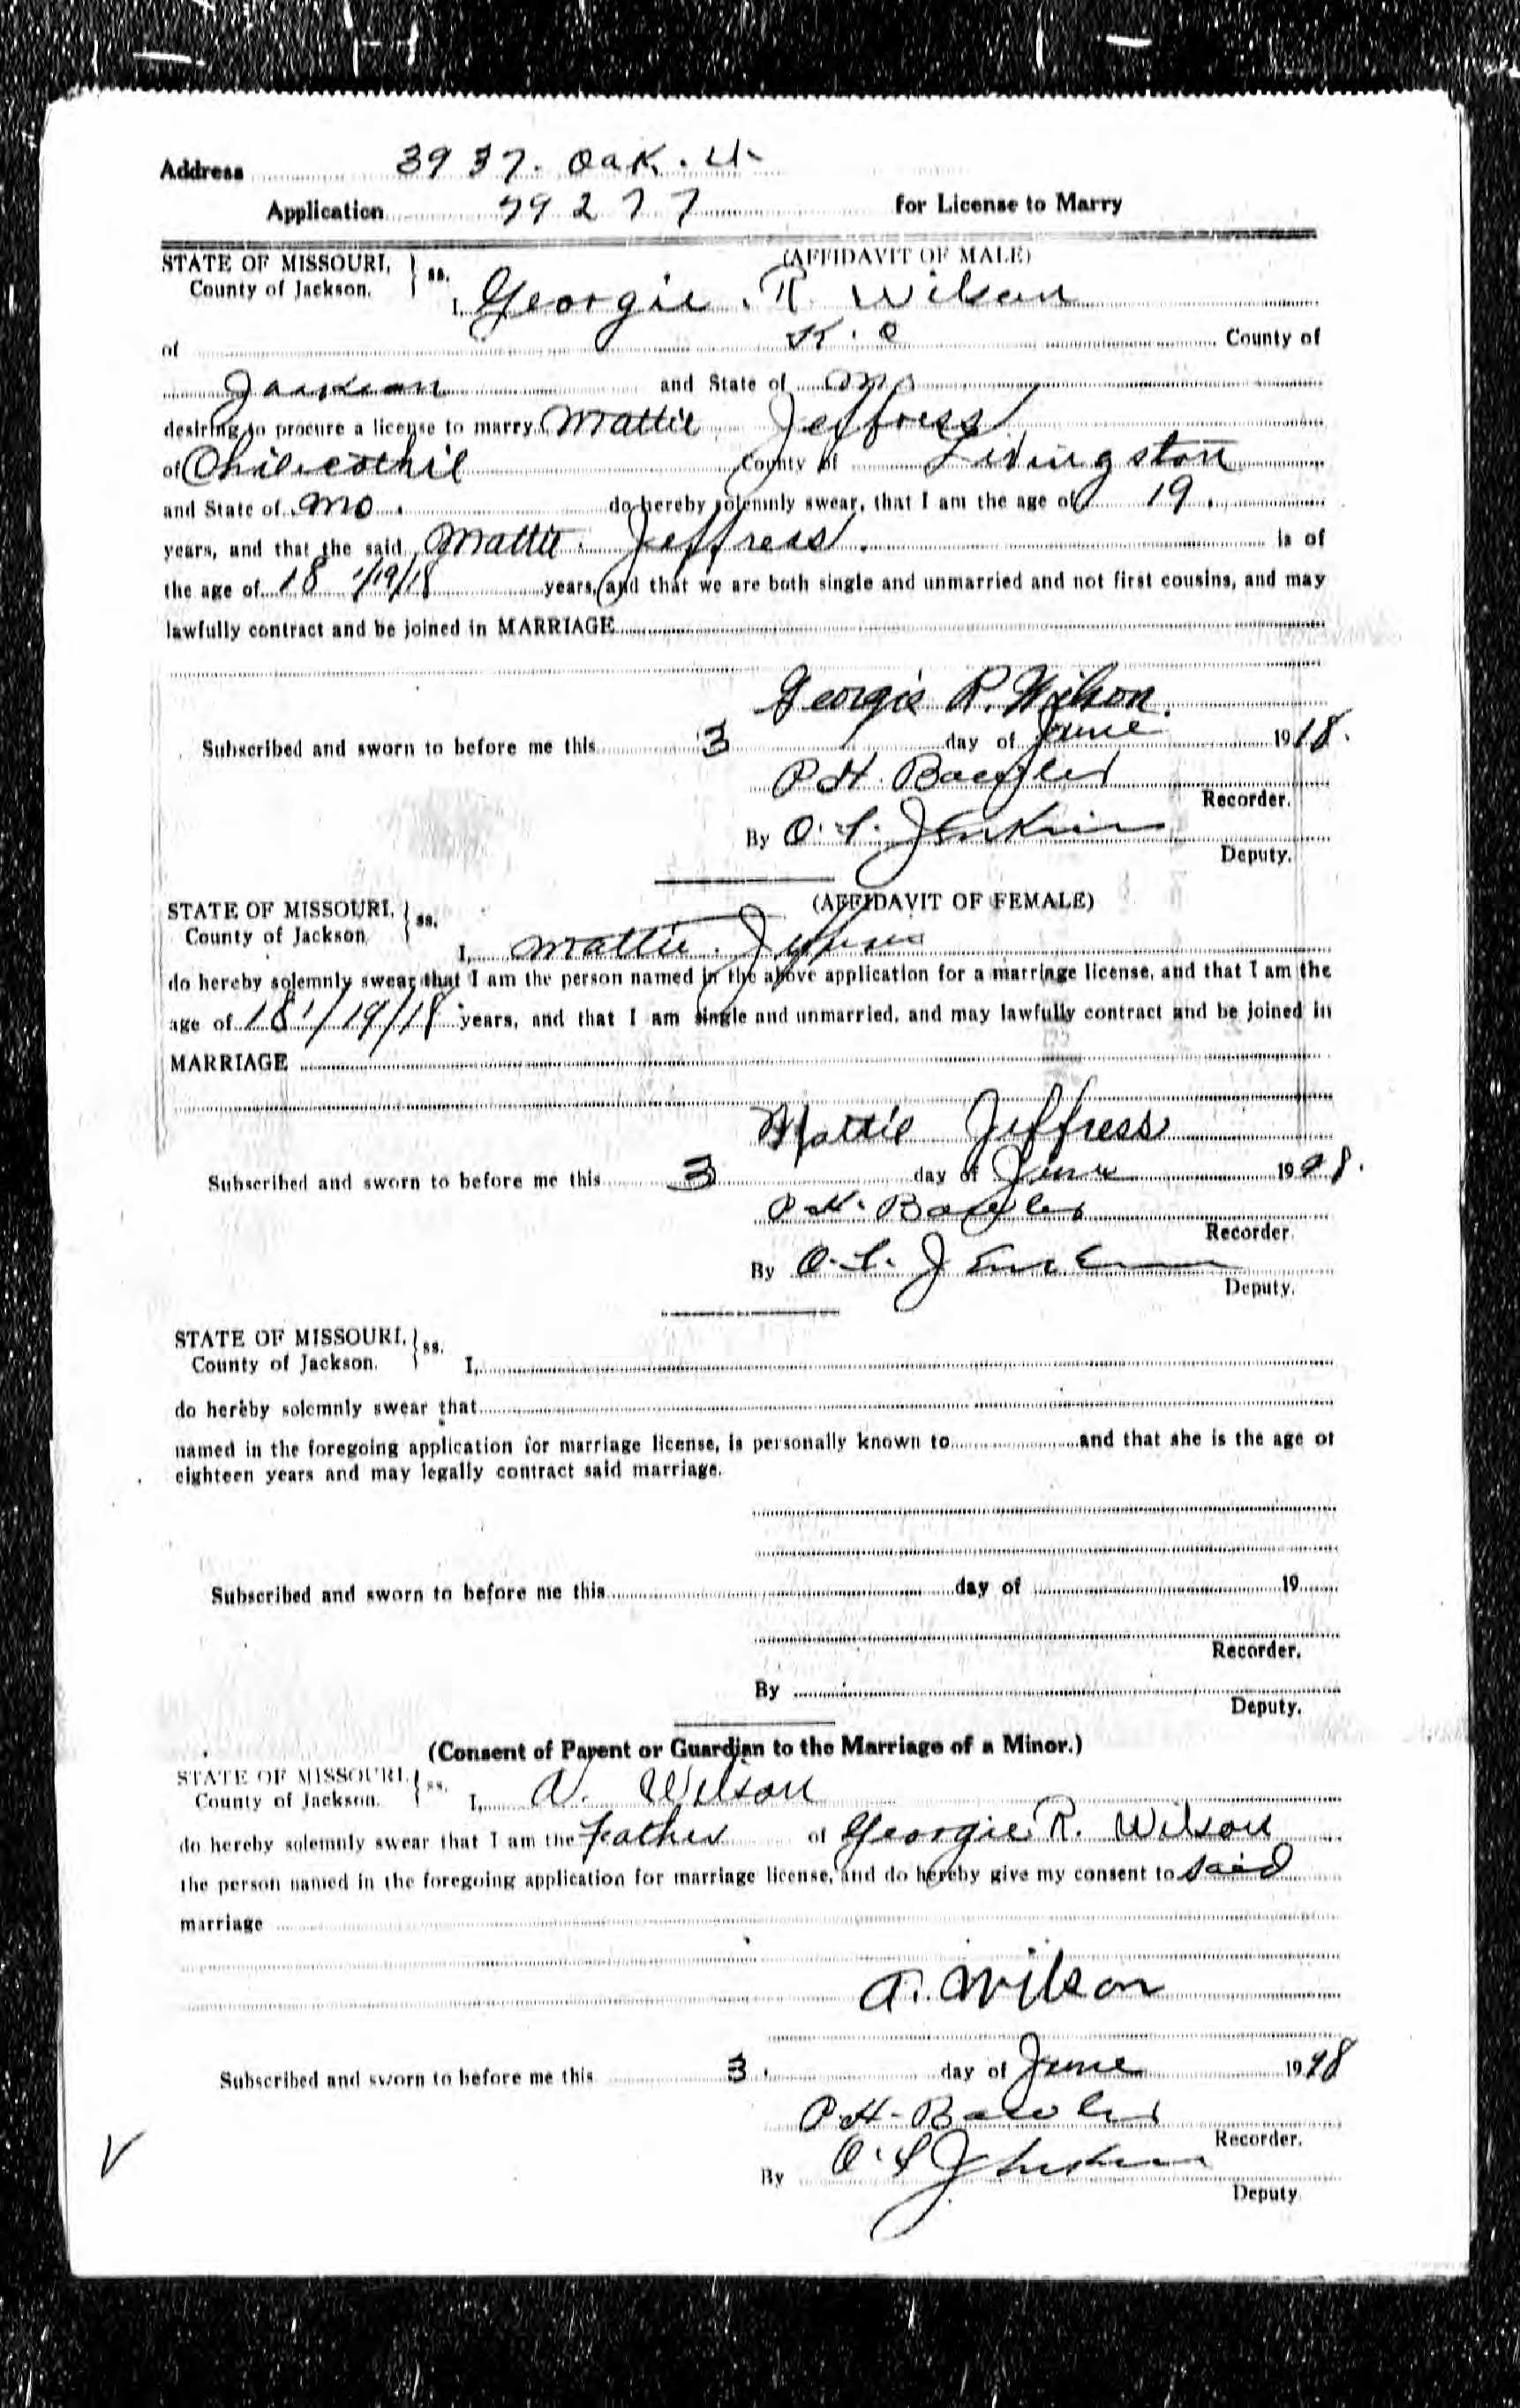 Address 3937. Oak. St
Application 79277 for License to Marry
(AFFIDAVIT OF MALE)
STATE OF MISSOURI, ss.
County of Jackson.
I, Georgie. R. Wilson
of K. C County of
Jackson and State of Mo
desiring to procure a license to marry Mattie Jeffress
of Chilecothie County of Livingston
and State of Mo. do hereby solemnly swear, that I am the age of 19.
years, and that the said Mattie. Jeffress. is of
the age of 18 1/19/18 years, and that we are both single and unmarried and not first cousins, and may
lawfully contract and be joined in MARRIAGE
Georgie R. Wilson.
Subscribed and sworn to before me this 3 day of June 1918.
P.H.
Recorder.
By O. L. Jenkins
Deputy.
(AFFIDAVIT OF FEMALE)
STATE OF MISSOURI, ss.
County of Jackson
I, Mattie. Jeffress
do hereby solemnly swear that I am the person named in the above application for a marriage license, and that I am the
age of 18 1/19/18 years, and that I am single and unmarried, and may lawfully contract and be joined in
MARRIAGE
Mattie Jeffress
Subscribed and sworn to before me this 3 day of June 1918.
P.H.
Recorder.
By O. L. Jenkins
Deputy.
STATE OF MISSOURI, ss.
County of Jackson. I,
do hereby solemnly swear that
named in the foregoing application for marriage license, is personally known to and that she is the age of
eighteen years and may legally contract said marriage.
Subscribed and sworn to before me this day of 19
Recorder.
By
Deputy.
(Consent of Parent or Guardian to the Marriage of a Minor.)
STATE OF MISSOURI, ss.
County of Jackson. I, A. Wilson
do hereby solemnly swear that I am the father of Georgie R. Wilson
the person named in the foregoing application for marriage license, and do hereby give my consent to said
marriage
A. Wilson
Subscribed and sworn to before me this 3. day of June 1918
P.H.
Recorder.
By O. L. Jenkins
Deputy